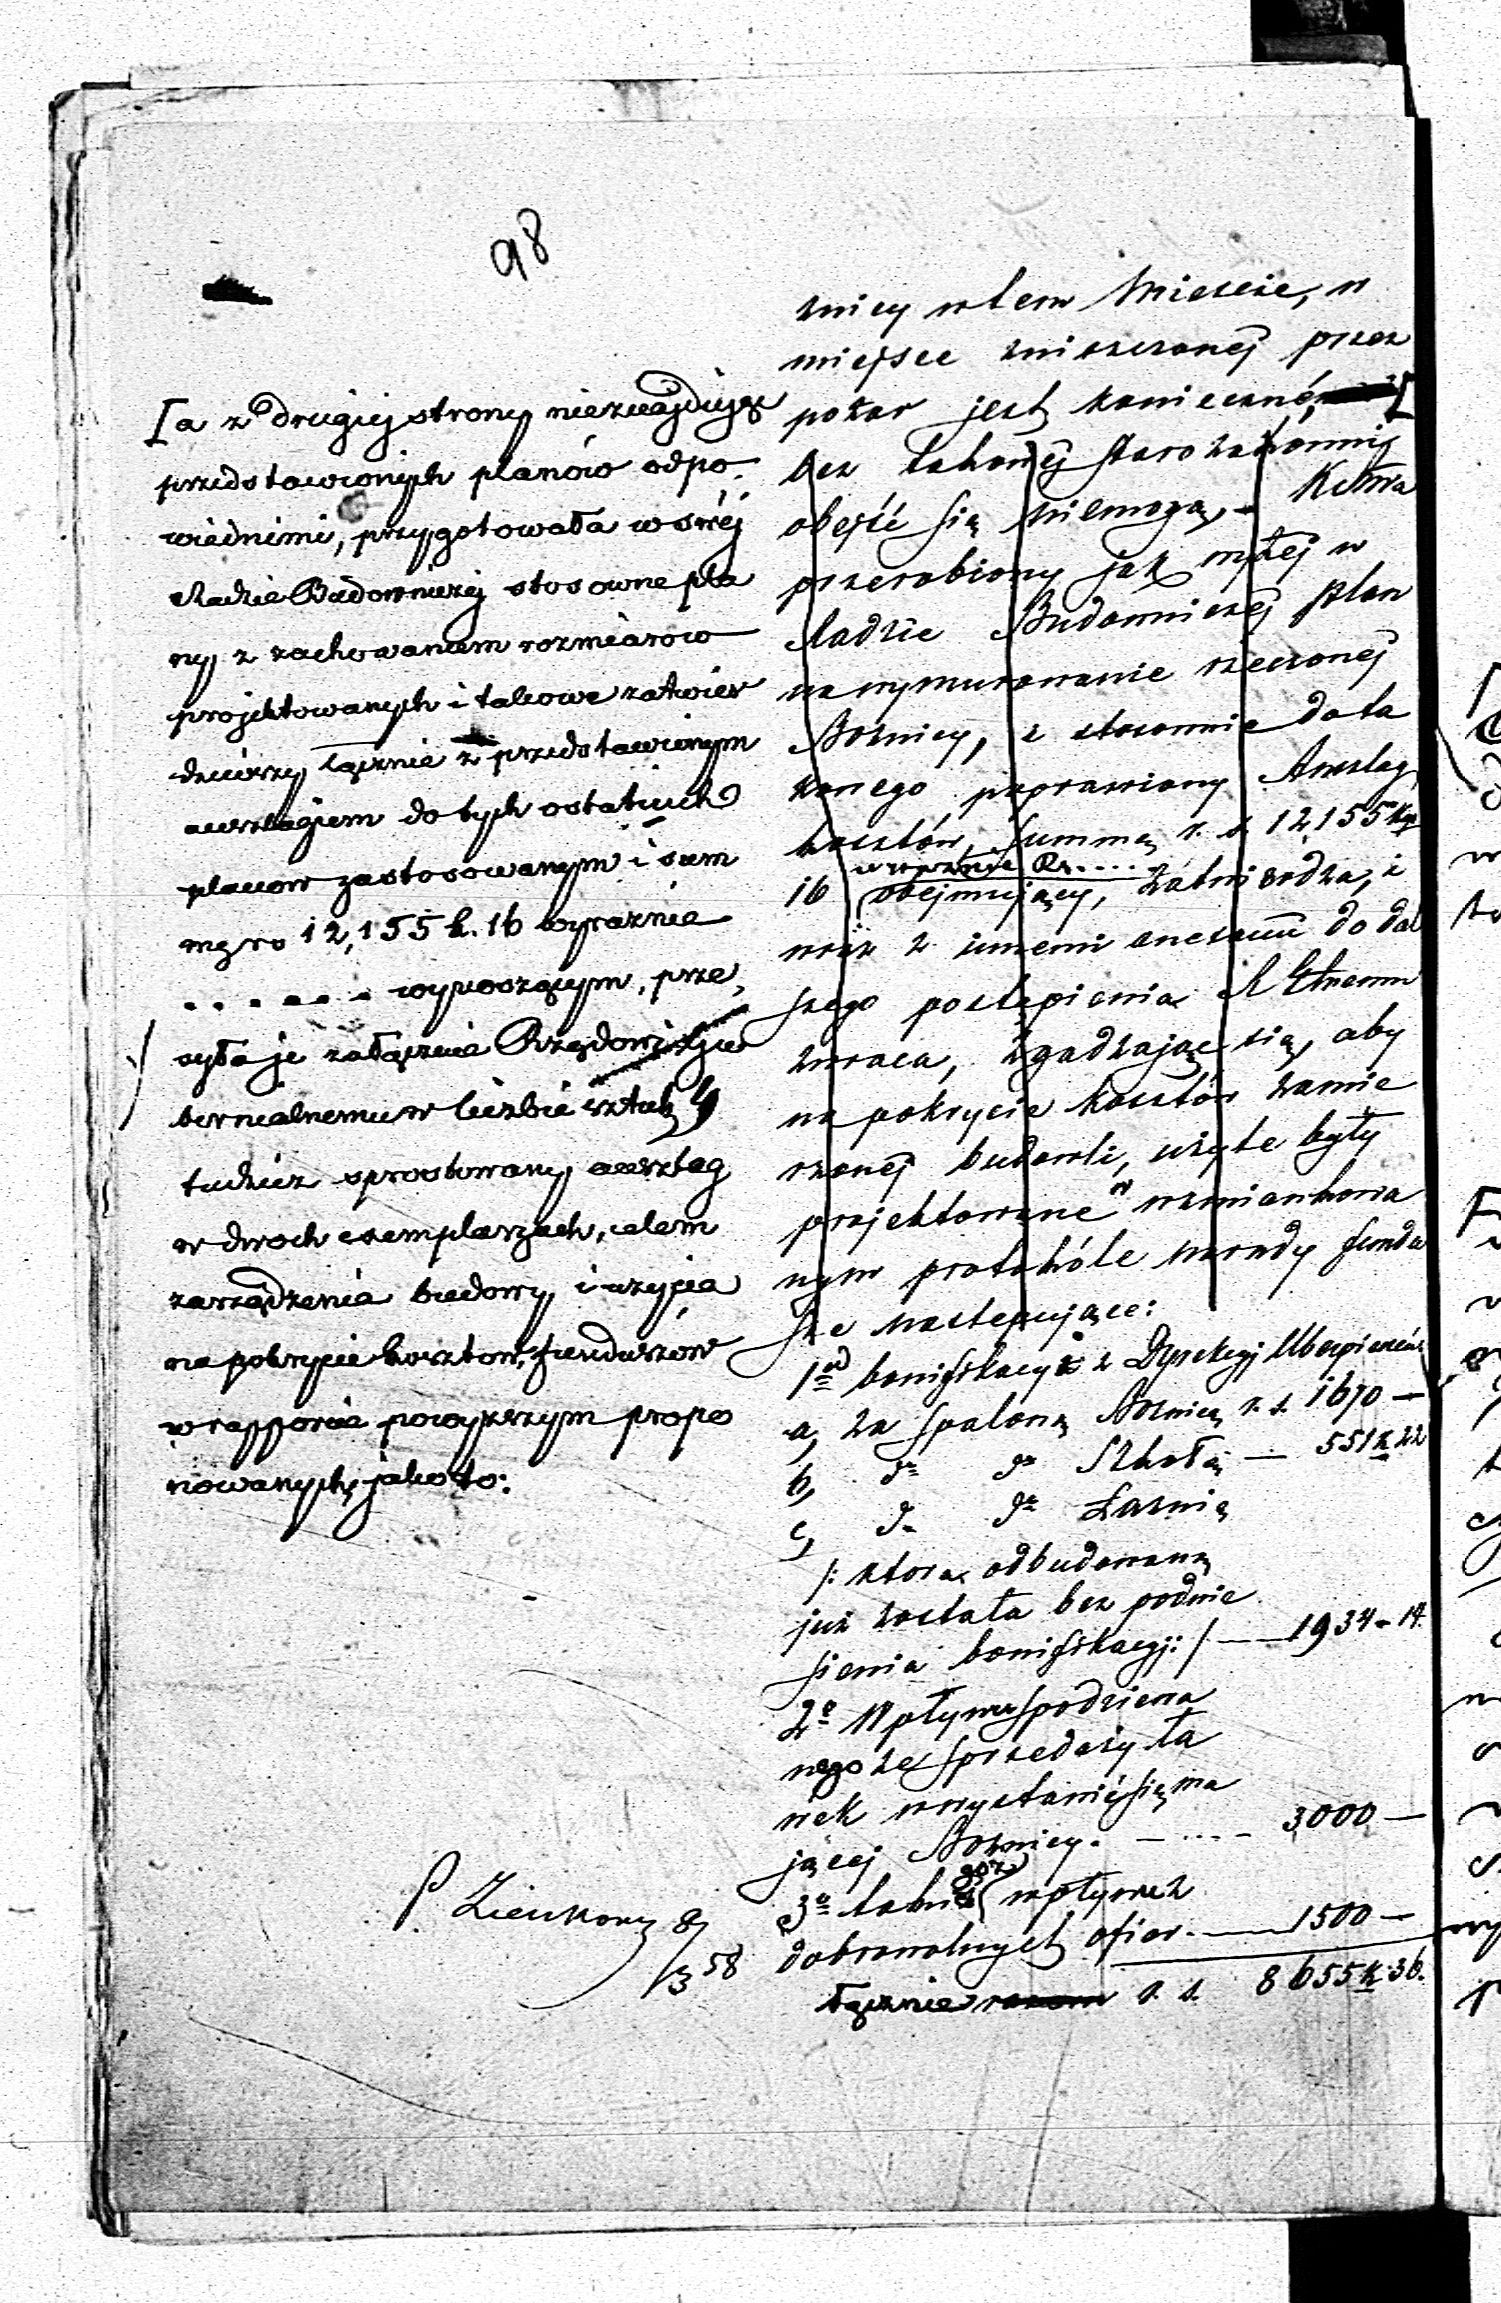 98
[a z drugiej strony nieznajdując
przedstawionych planów odpo
wiedniemi, przygotowała w swéj
Radzie Budowniczéj stosowne pla
ny z zachowaniem rozmiarów
projektowanych i takowe zatwier
dziwszy, łącznie z przedstawionym
anszlagiem do tych ostatnich
planów zastosowanym i sum
mę rs 12,155 k. 16 wyraźnie
. . . . . . . wynoszącym, prze,
syła je załącznie Rządowi Gu
bernialnemu w liczbie sztuk 4
tudzież sprostowany anszlag
w dwoch exemplarzach, celem
zarządzenia budowy i użycia
na pokrycie kosztów, funduszów
w rapporcie powyższym propo
nowanych, jakoto:
P. Zienkowy 8/3 58
żnicy w tem Mieście, w
miejsce zniszczonéj przez
pożar jest konieczné, [
bez takowéj Starozakonni
obejść się niemogą,
przerobiony jak wyżéj w
Radzie Budowniczéj plan
na wymurowanie rzeczonéj
Bożnicy, i stosownie do ta
kowego poprawiony Anszlag
kosztów, Summę r. s. 12,155 kp
wyraźnie Rs. . . . .
16 obejmujący, zatwierdza, i
wraz z innemi anexami do dal
szego postąpienia
zwraca, zgadzając się, aby
na pokrycie kosztów zamie
rzonéj budowli, użyte były
projektowane w wzmiankowa
nym protokóle narady fundu
sze następujące:
1od bonifikacya z Dyrekcyj Ubezpieczeń
a, za spaloną Bożnicę r. s. 1670 —
b, do do Szkołę — 551 k 22
c, do do Łaźnią
/: która odbudowaną
już została bez podnie
sienia bonifikacyj :/ — 1934 - 14
2o Wpływu spodziewa
nego ze sprzedaży ła
wek w wystawić się ma
jącéj Bożnicy. — . . . - 3000 —
3o takie goż wpływu z
dobrowolnych ofiar. — 1500 —
łącznie razem r. s. 8655 k. 36.